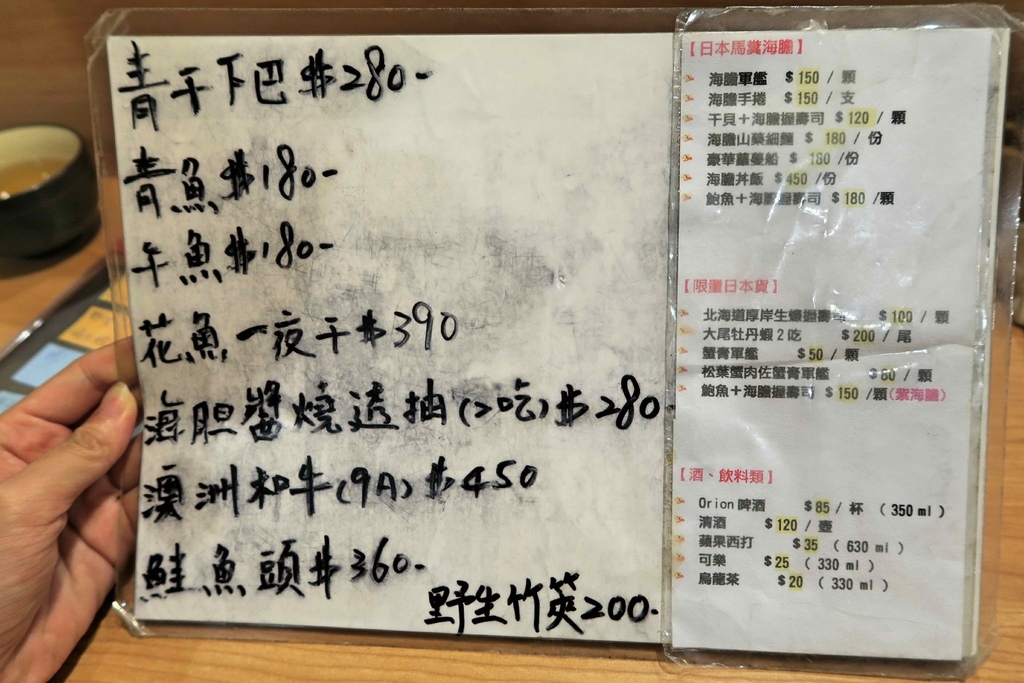 青干下巴 $280-
青魚 $180-
午魚 $180-
花魚一夜干 $390
海胆醬燒透抽(2吃) $280
澳洲和牛(9A) $450
鮭魚頭 $360-
野生竹筴 200-
【日本馬糞海膽】
海膽軍艦 $150 / 顆
海膽手捲 $150 / 支
干貝+海膽握壽司 $120 / 顆
海膽山藥細麵 $ 180/ 份
豪華蘆薈船 $ 180 /份
海膽丼飯 $450 /份
鮑魚+海膽握壽司 $180 /顆
【限量日本貨】
北海道厚岸生蠔握壽司 $100 / 顆
大尾牡丹蝦2吃 $200 / 尾
蟹膏軍艦 $50 / 顆
松葉蟹肉佐蟹膏軍艦 $50 / 顆
鮑魚+海膽握壽司 $150 /顆(紫海膽)
【酒、飲料類】
Orion啤酒 $85 / 杯 (350 ml)
清酒 $120 / 壺
蘋果西打 $35 (630 ml)
可樂 $25 (330 ml)
烏龍茶 $20 (330 ml)